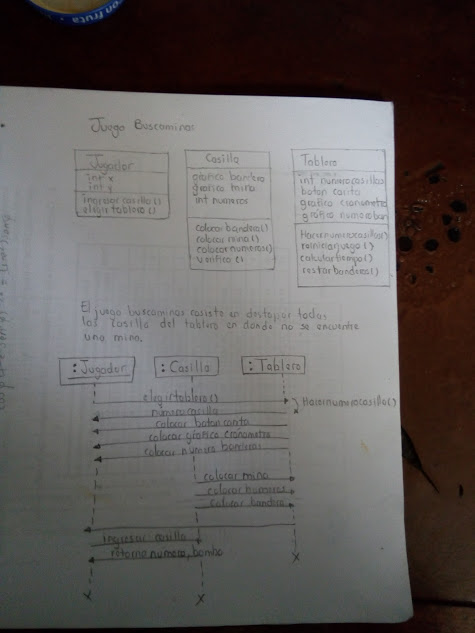 on fruta
Juego Buscaminas
Jugador
int x
int y
ingresar casilla()
elegir tablero()
Casilla
grafico bandera
grafico mina
int numeros
colocar bandera()
colocar mina()
colocar numeros()
verifica()
Tablero
int numero casillas
boton carita
grafico cronometro
grafico numero ban
Hacer numero casilla()
reiniciar juego()
calcular tiempo()
restar banderas()
El juego buscaminas casiste en destojar todas
las casilla del tablero en donde no se encuentre
una mina.
:Jugador
:Casilla
:Tablero
elegir tablero()
Hacer numero casilla()
numero casilla
colocar boton carita
colocar grafico cronometro
colocar numero banderas
colocar mina
colocar numeros
colocar bandera
ingresar casilla
retorno numero, bomba